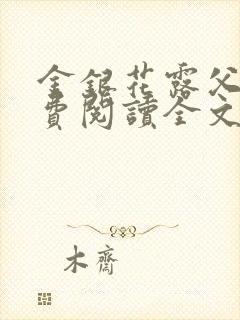 金銀花露父
費閱讀全文
木齋